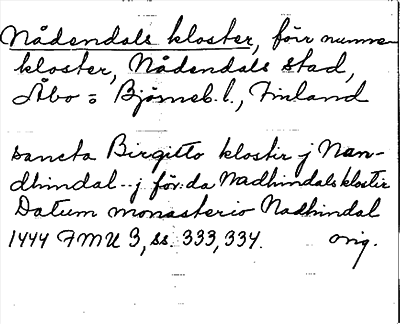 Nådendals kloster, förr nunne
kloster, Nådendals stad,
Åbo = Björneb. l., Finland
sancta Birgitto kloster j Nan-
dhindal--j för:da Nadhindals kloster
Datum monasterio Nadhindal
1444 FMU 3, ss. 333, 334. orig.